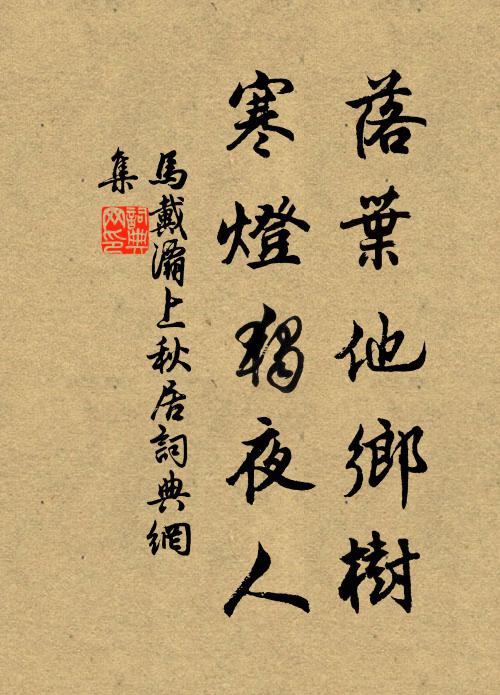 落葉他鄉樹
寒燈獨夜人
馬戴灞上秋居詞典網
集
詞典网印